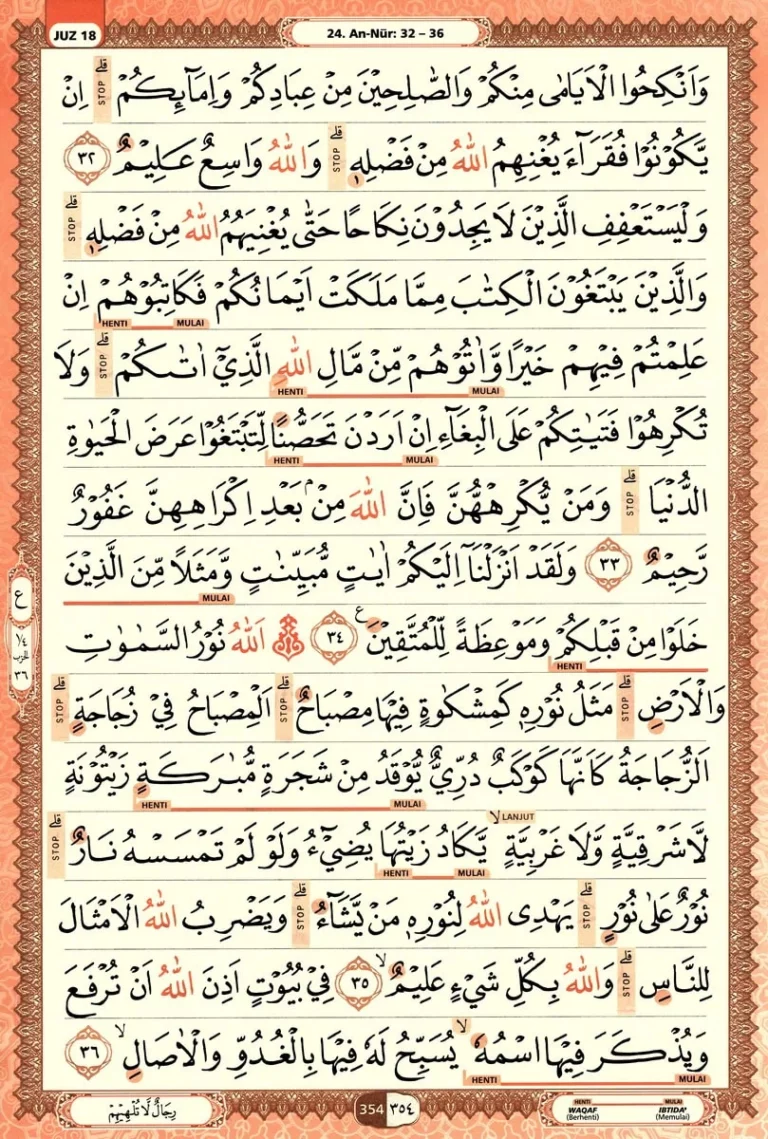 JUZ 18
24. An-Nūr: 32 – 36
وَاَنْكِحُوا الْاَيَامٰى مِنْكُمْ وَالصّٰلِحِيْنَ مِنْ عِبَادِكُمْ وَاِمَاۤىِٕكُمْ ۗ STOP اِنْ
يَّكُوْنُوْا فُقَرَاۤءَ يُغْنِهِمُ اللّٰهُ مِنْ فَضْلِهٖ ۗ STOP وَاللّٰهُ وَاسِعٌ عَلِيْمٌ ٣٢
وَلْيَسْتَعْفِفِ الَّذِيْنَ لَا يَجِدُوْنَ نِكَاحًا حَتّٰى يُغْنِيَهُمُ اللّٰهُ مِنْ فَضْلِهٖ ۗ STOP
وَالَّذِيْنَ يَبْتَغُوْنَ الْكِتٰبَ مِمَّا مَلَكَتْ اَيْمَانُكُمْ فَكَاتِبُوْهُمْ اِنْ
MULAI HENTI
عَلِمْتُمْ فِيْهِمْ خَيْرًا وَّاٰتُوْهُمْ مِّنْ مَّالِ اللّٰهِ الَّذِيْٓ اٰتٰىكُمْ ۗ STOP وَلَا
MULAI HENTI
تُكْرِهُوْا فَتَيٰتِكُمْ عَلَى الْبِغَاۤءِ اِنْ اَرَدْنَ تَحَصُّنًا لِّتَبْتَغُوْا عَرَضَ الْحَيٰوةِ
MULAI HENTI
الدُّنْيَا ۗ STOP وَمَنْ يُّكْرِهْهُّنَّ فَاِنَّ اللّٰهَ مِنْۢ بَعْدِ اِكْرَاهِهِنَّ غَفُوْرٌ
رَّحِيْمٌ ٣٣ وَلَقَدْ اَنْزَلْنَآ اِلَيْكُمْ اٰيٰتٍ مُّبَيِّنٰتٍ وَّمَثَلًا مِّنَ الَّذِيْنَ
MULAI
خَلَوْا مِنْ قَبْلِكُمْ وَمَوْعِظَةً لِّلْمُتَّقِيْنَ ࣖ ٣٤ ۞ اَللّٰهُ نُوْرُ السَّمٰوٰتِ
HENTI
وَالْاَرْضِ ۗ STOP مَثَلُ نُوْرِهٖ كَمِشْكٰوةٍ فِيْهَا مِصْبَاحٌ ۗ STOP اَلْمِصْبَاحُ فِيْ زُجَاجَةٍ ۗ STOP
اَلزُّجَاجَةُ كَاَنَّهَا كَوْكَبٌ دُرِّيٌّ يُّوْقَدُ مِنْ شَجَرَةٍ مُّبٰرَكَةٍ زَيْتُوْنَةٍ
MULAI HENTI
لَّا شَرْقِيَّةٍ وَّلَا غَرْبِيَّةٍ ۙ LANJUT يَّكَادُ زَيْتُهَا يُضِيْۤءُ وَلَوْ لَمْ تَمْسَسْهُ نَارٌ ۗ STOP
MULAI HENTI
نُوْرٌ عَلٰى نُوْرٍ ۗ STOP يَهْدِى اللّٰهُ لِنُوْرِهٖ مَنْ يَّشَاۤءُ ۗ STOP وَيَضْرِبُ اللّٰهُ الْاَمْثَالَ
لِلنَّاسِ ۗ STOP وَاللّٰهُ بِكُلِّ شَيْءٍ عَلِيْمٌ ۙ ٣٥ فِيْ بُيُوْتٍ اَذِنَ اللّٰهُ اَنْ تُرْفَعَ
وَيُذْكَرَ فِيْهَا اسْمُهٗ ۙ يُسَبِّحُ لَهٗ فِيْهَا بِالْغُدُوِّ وَالْاٰصَالِ ۙ ٣٦
MULAI HENTI
ع
١/٤
الحزب
٣٦
رِجَالٌ لَّا تُلْهِيْهِمْ
354 ٣٥٤
HENTI MULAI
WAQAF IBTIDA'
(Berhenti) (Memulai)